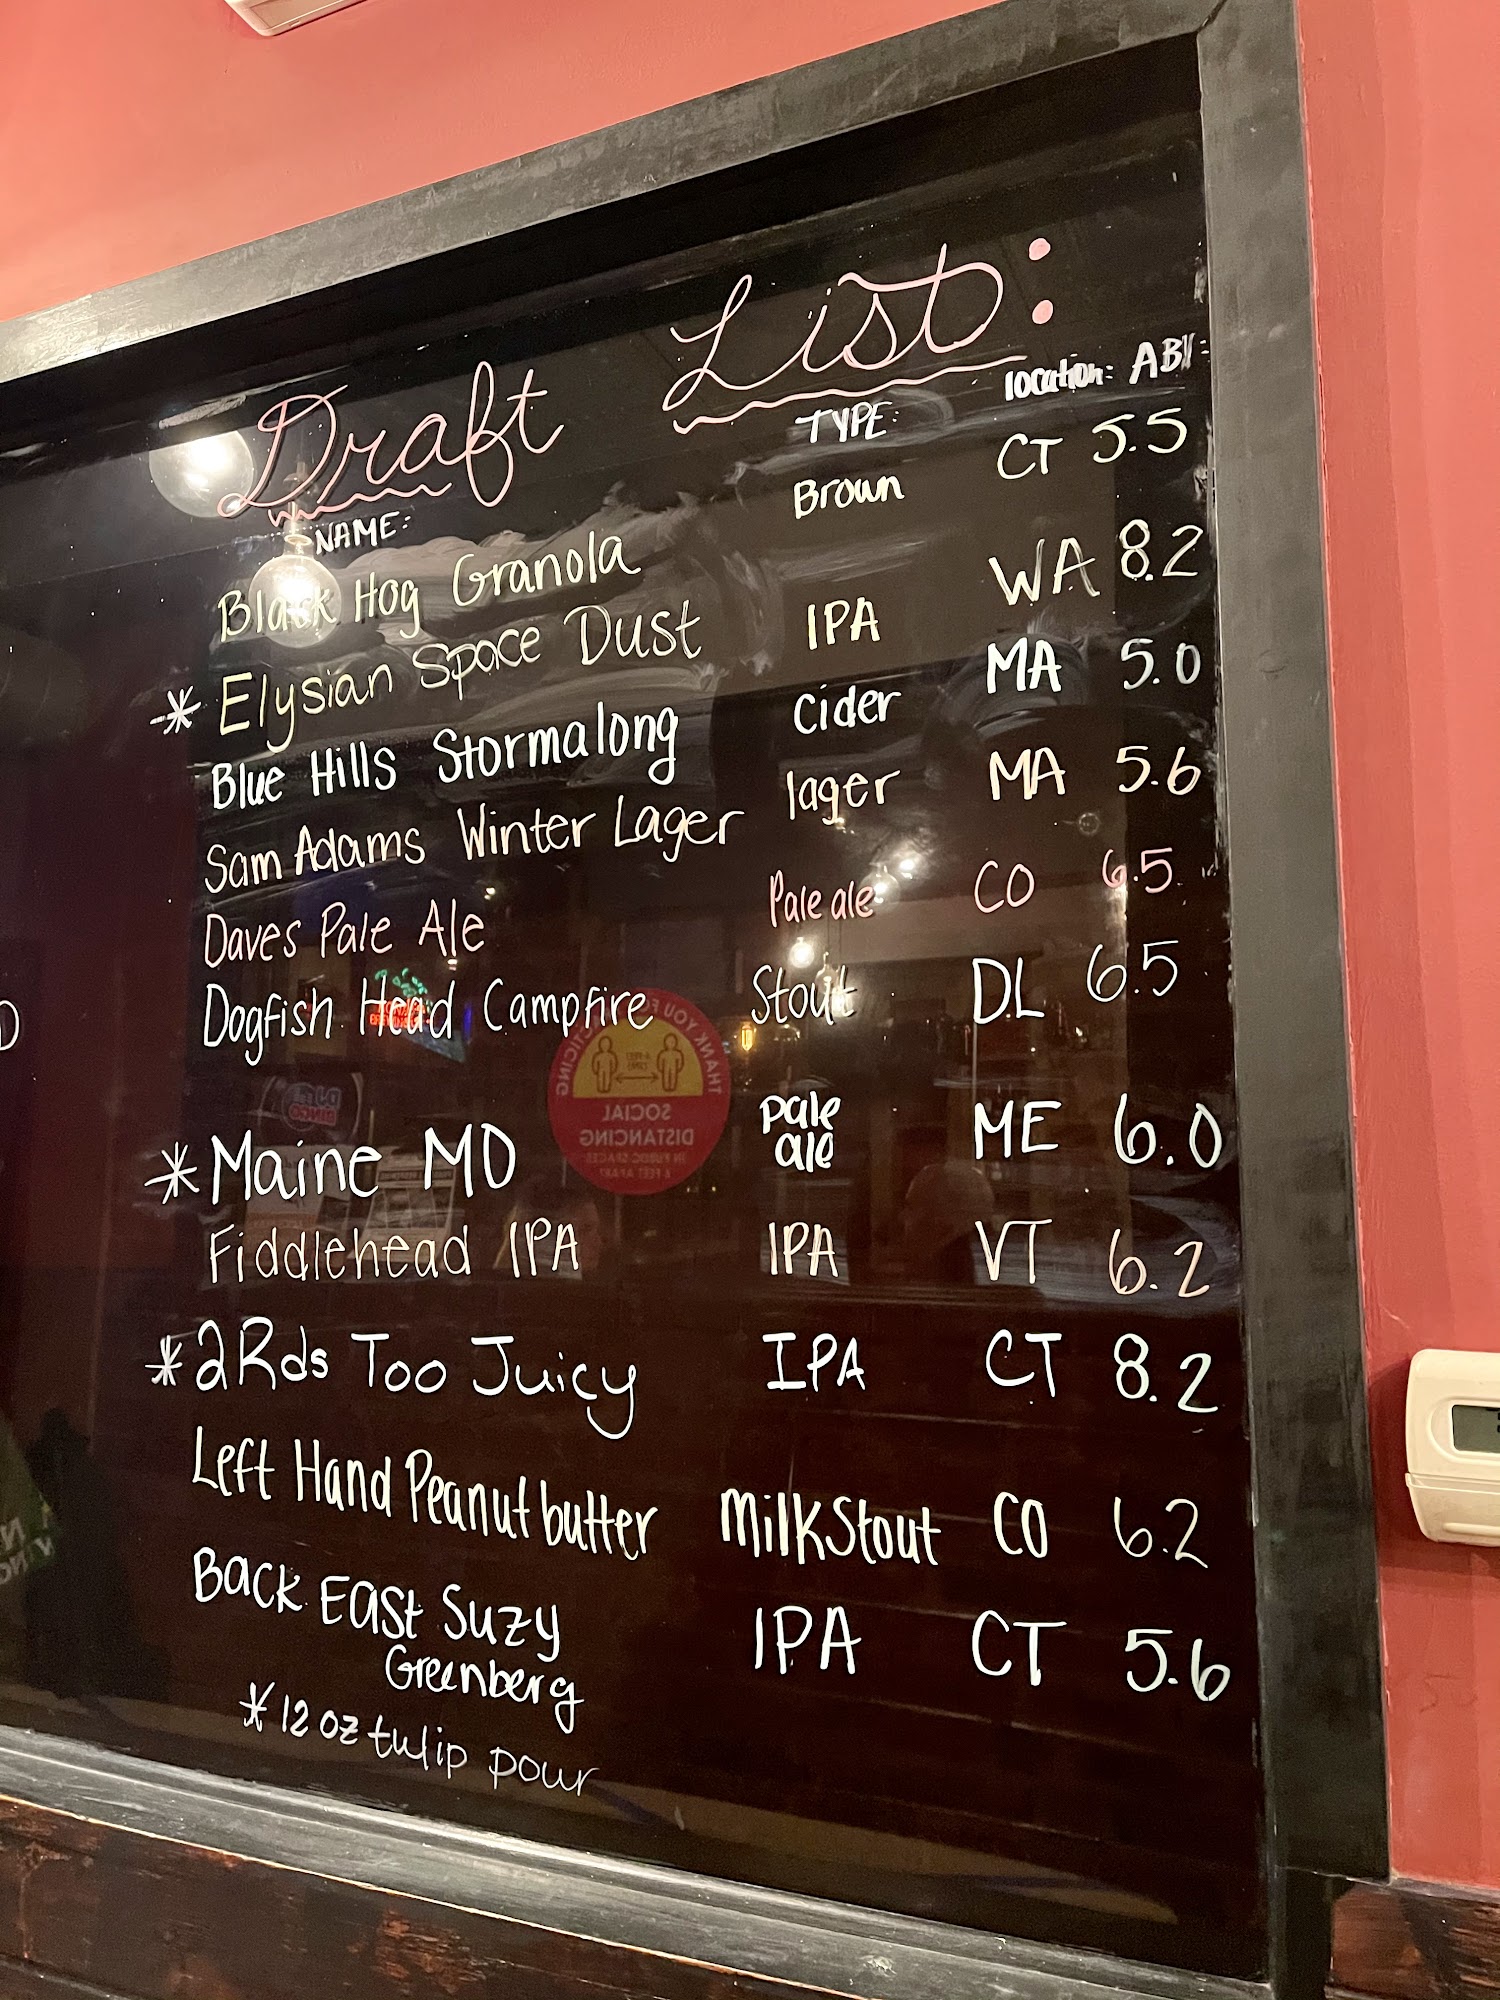 Draft List:
NAME: TYPE: location: ABV:
Black Hog Granola Brown CT 5.5
* Elysian Space Dust IPA WA 8.2
Blue Hills Stormalong Cider MA 5.0
Sam Adams Winter Lager lager MA 5.6
Daves Pale Ale Pale ale CO 6.5
Dogfish Head Campfire Stout DL 6.5
* Maine MO pale ale ME 6.0
Fiddlehead IPA IPA VT 6.2
* 2Rds Too Juicy IPA CT 8.2
Left Hand Peanut butter Milk Stout CO 6.2
Back East Suzy IPA CT 5.6
Greenberg
* 12 oz tulip pour
THANK YOU FOR
SOCIAL
DISTANCING
IN PUBLIC SPACES